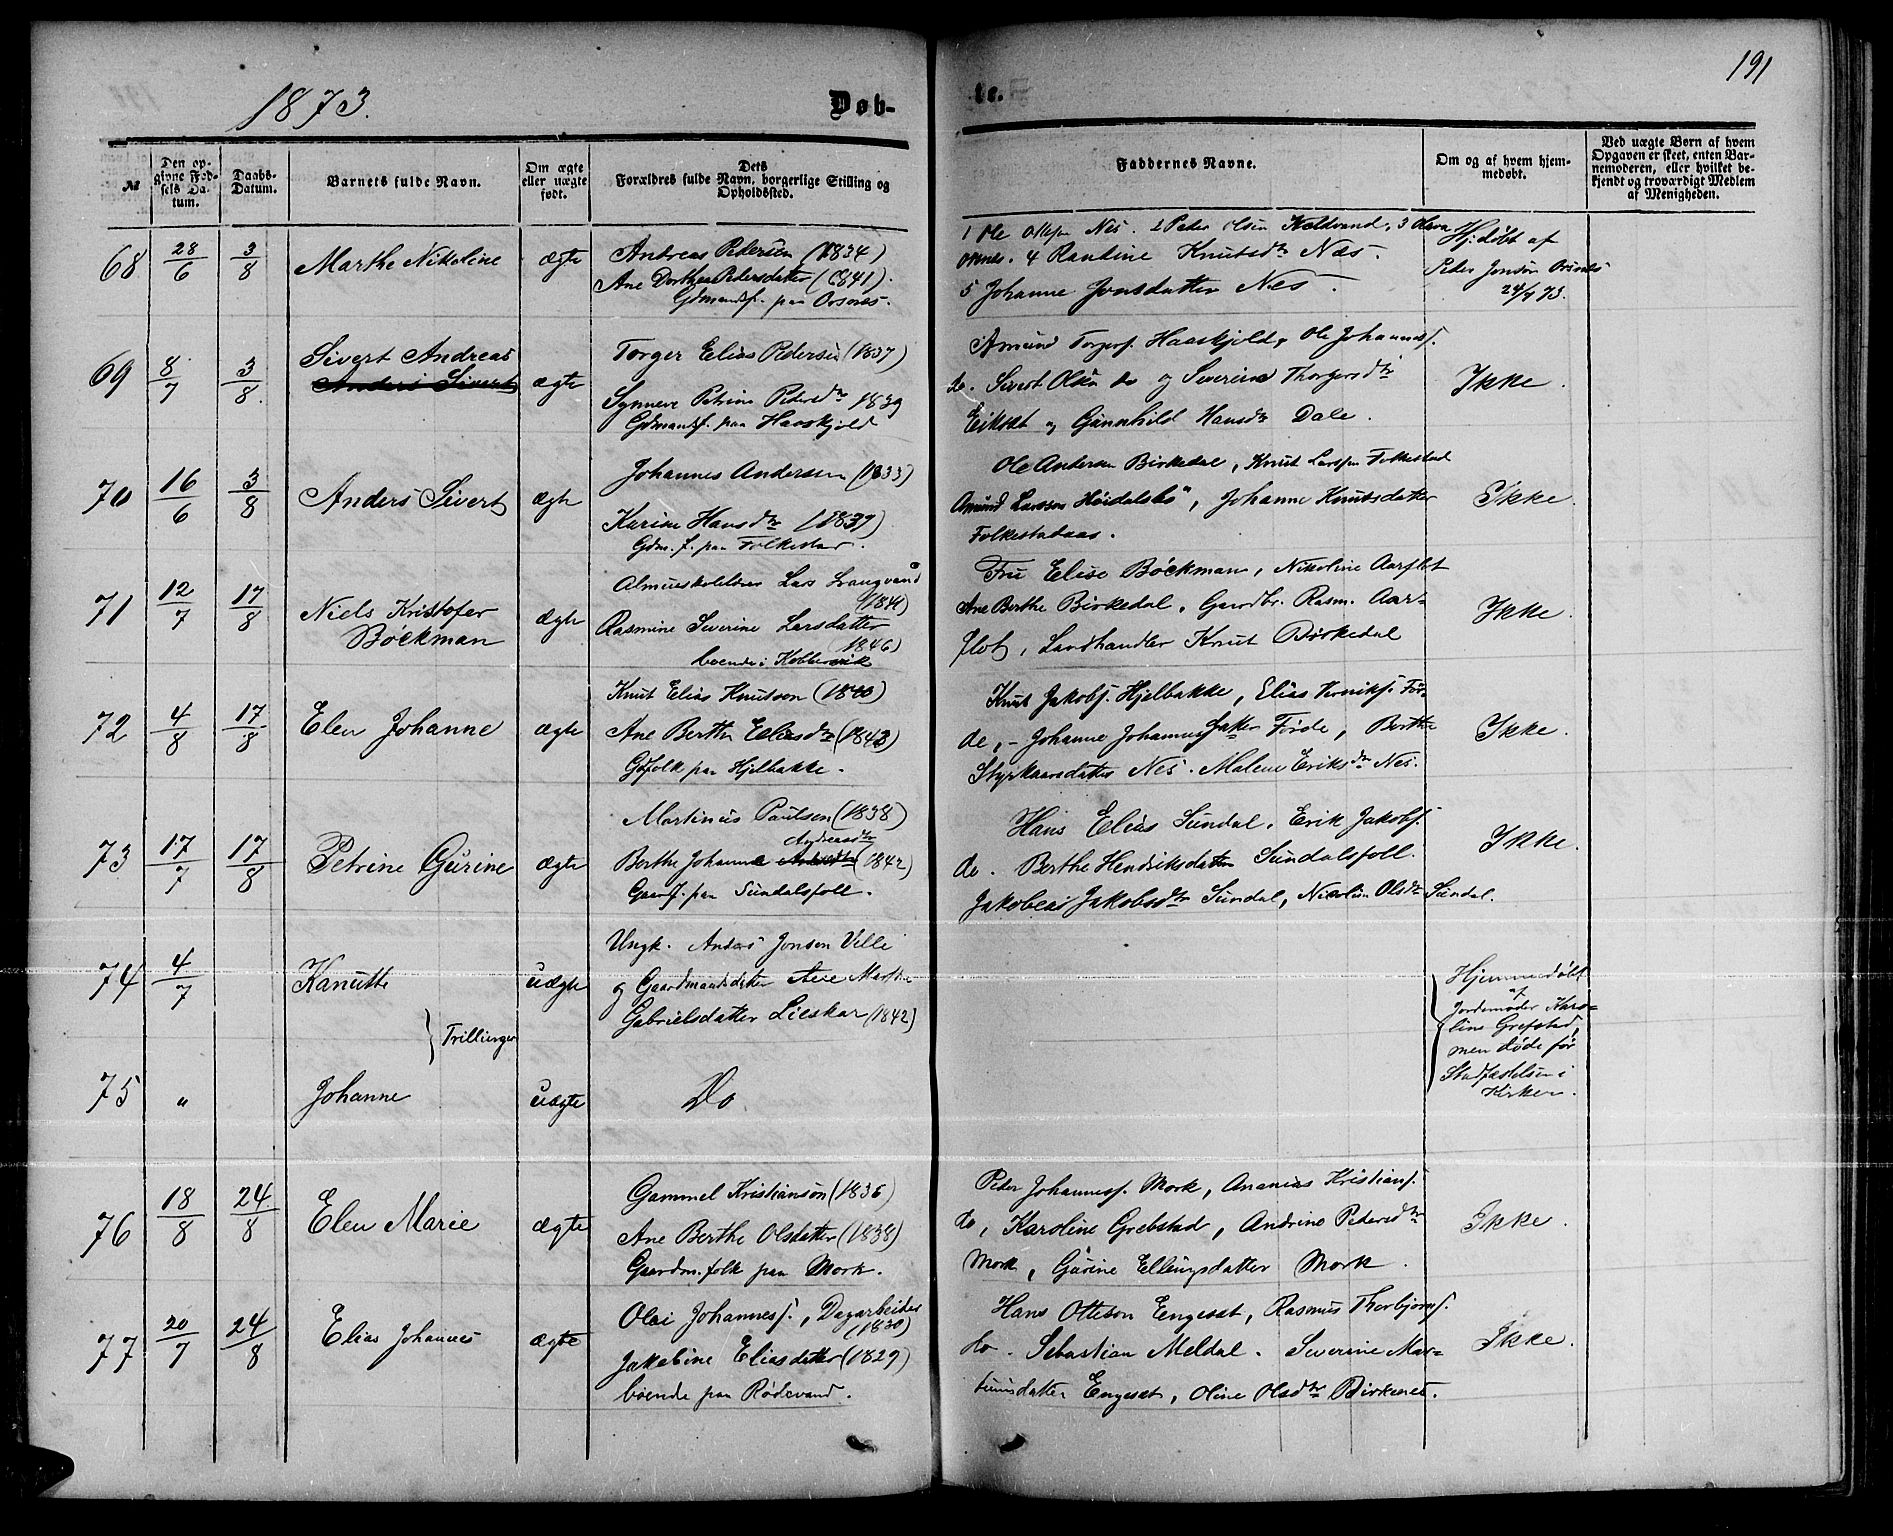 191
1873. Døb- te.
№
Den op-
givne Fød-
sels Da-
tum.
Daabs-
Datum.
Barnets fulde Navn.
Om ægte
eller uægte
født.
Dets
Forældres fulde Navn, borgerlige Stilling og
Opholdssted.
Faddernes Navne.
Om og af hvem hjem-
medøbt.
Ved uægte Børn af hvem
Opgaven er skeet, enten Bar-
nemoderen, eller hvilket be-
kjendt og troværdigt Medlem
af Menigheden.
68 28/6 3/8 Marthe Nikoline ægte
Andreas Pedersen (1834)
Ane Dorthea Pedersdatter (1841).
Gdmandsf. paa Orsnes.
1 Ole Nes. 2 Peder Olsen 3 Olava
4 Randine Knutsdtr Næs.
5 Johanne Jonsdatter Nes.
Hj.døbt af
Peder Jonsøn Orsnes
24/7 73.
69 8/7 3/8 Sivert Andreas
Anders Sivert ægte
Torger Elias Pedersen (1837)
Synneve Petrine Pedersdtr 1839
Gdmandsf. paa Haaskjold
Amund Torgersf. Haaskjold, Ole Johannesf.
do. Sivert Olsen do og Severine Thorgersdtr
Eikset og Gunnhild Hansdtr Dale.
Ikke.
70 16/6 3/8 Anders Sivert ægte
Johannes Andersen (1833)
Karine Hansdtr (1839)
Gdm.f. paa Folkestad.
Ole Andersen Birkedal, Knut Larsen Folkestad
Amund Larssen Høidalsbø, Johanne Knutsdatter
Folkestadaas.
Ikke.
71 12/7 17/8 Niels Kristofer
Bøckman ægte
Almueskolelærer Lars
(1844)
Rasmine Severine Larsdatter
1846)
boende i Kobbervik
Fru Elise Bøckman, Nikoline Aarflot
Ane Berthe Birkedal, Gaardbr. Rasm. Aar-
flot, Landhandler Knut Birkedal
Ikke.
72 4/8 17/8 Elen Johanne ægte
Knut Elias Knutson (1840)
Ane Berthe Eliasdtr (1843)
Gdfolk paa Hjelbakke.
Knut Jakobsf. Hjelbakke, Elias Før-
de, – Johanne Førde, Berthe
Styrkaarsdatter Nes. Malene Eriksdtr Nes.
Ikke.
73 17/7 17/8 Petrine Gurine ægte
Martinus Paulsen (1838)
Andreasdtr
Berthe Johanne (1842)
Gaardf. paa Sundalsfoll.
Hans Elias Sundal, Erik Jakobsf.
do. Berthe Hendriksdatter Sundalsfoll.
Jakobea Jakobsdtr Sundal, Nicoline Olsdtr Sundal.
Ikke.
74 4/7 Kanutte uægte
Ungk. Anders Jonsen Velle
og Gaardmandsdatter Ane Marthe
Gabrielsdatter Lieskar (1842)
Trillinger
Hjemmedøbt
af
Jordemoder Karo-
line Grefstad,
men døde før
Stadfæstelsen i
Kirken.
75 " Johanne uægte
Do
76 18/8 24/8 Elen Marie ægte
Gammel Kristiansøn (1836)
Ane Berthe Olsdatter (1838)
Gaardm.folk paa Mork.
Peder Johannesf. Mork, Ananias Kristiansf.
do, Karoline Grebstad, Andrine Pedersdtr
Mork, Gurine Ellingsdatter Mork.
Ikke.
77 20/7 24/8 Elias Johannes ægte
Olai Johannesf., Dagarbeider
(1830)
Jakobine Eliasdatter (1829)
boende paa Rødevand.
Hans Otteson Engeset, Rasmus Thorbjørnsf.
do. Sebastian Meldal. Severine Mar-
tinusdatter Engeset, Oline Olsdtr Birkenes.
Ikke.